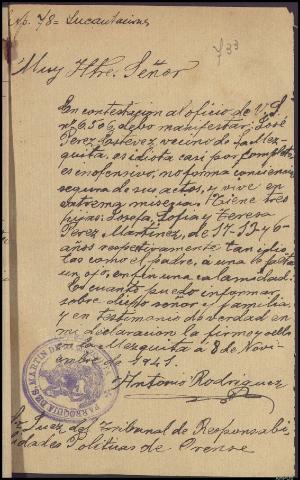 Exp. 78= Incautaciones
733
Muy Iltre. Señor
En contestacion al oficio de V. S.
nº 6.506, debo manifestar; José
Perez Estévez vecino de La Mez-
quita, es idiota casi por completo
es inofensivo; no forma conciencia
segura de sus actos, y vive en
extrema miseria. Tiene tres
hijas: Josefa, Sofia y Teresa
Perez Martinez, de 17-13 y 6-
años respectivamente tan idio-
tas como el padre, á una le falta
un ojo, en fin una calamidad.
Es cuanto puedo informar
sobre dicho señor y familia,
y en testimonio de verdad en
mi declaracion la firmo y sello
en La Mezquita á 8 de Novi-
embre de 1941.
Antonio Rodriguez
PARROQUIA DE S. MARTIN DE
Sr. Juez del Tribunal de Responsabi-
lidades Politicas de Orense